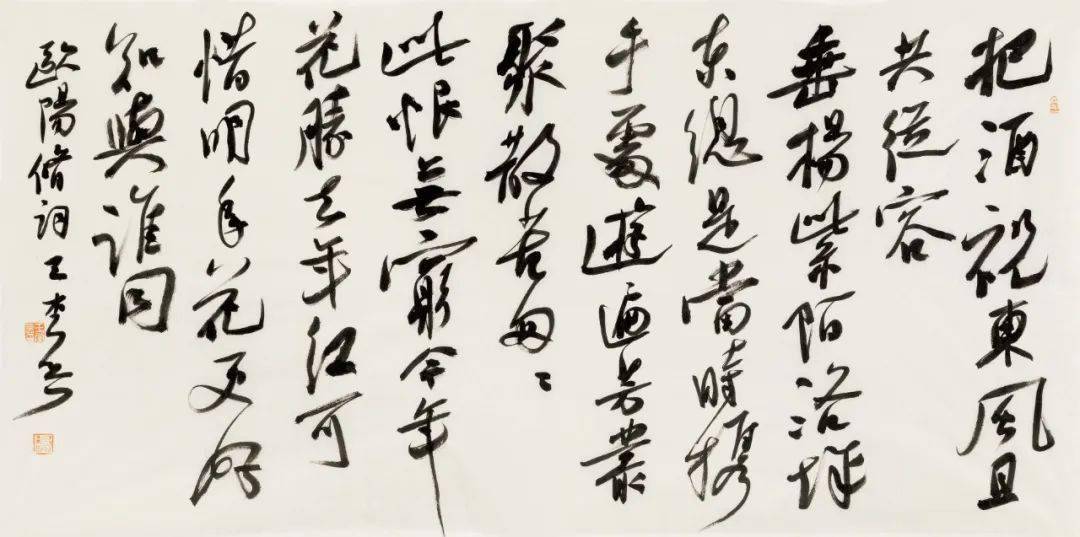 把酒祝東風且
共從容
垂楊紫陌洛城
東總是當時攜
手處遊遍芳叢
聚散苦匆〻
此恨無窮今年
花勝去年红可
惜明年花更好
知與誰同
歐陽脩詞王書